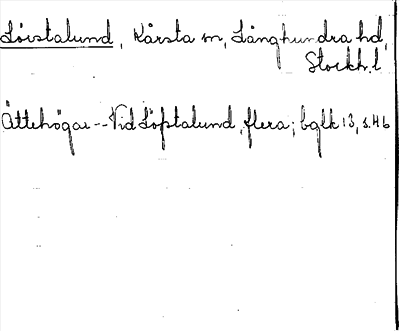 Lövstalund, Kårsta sn, Långhundra hd,
Stockh. l.
Ättehögar -- Vid Löfstalund, flera; bglk 13, s. 46